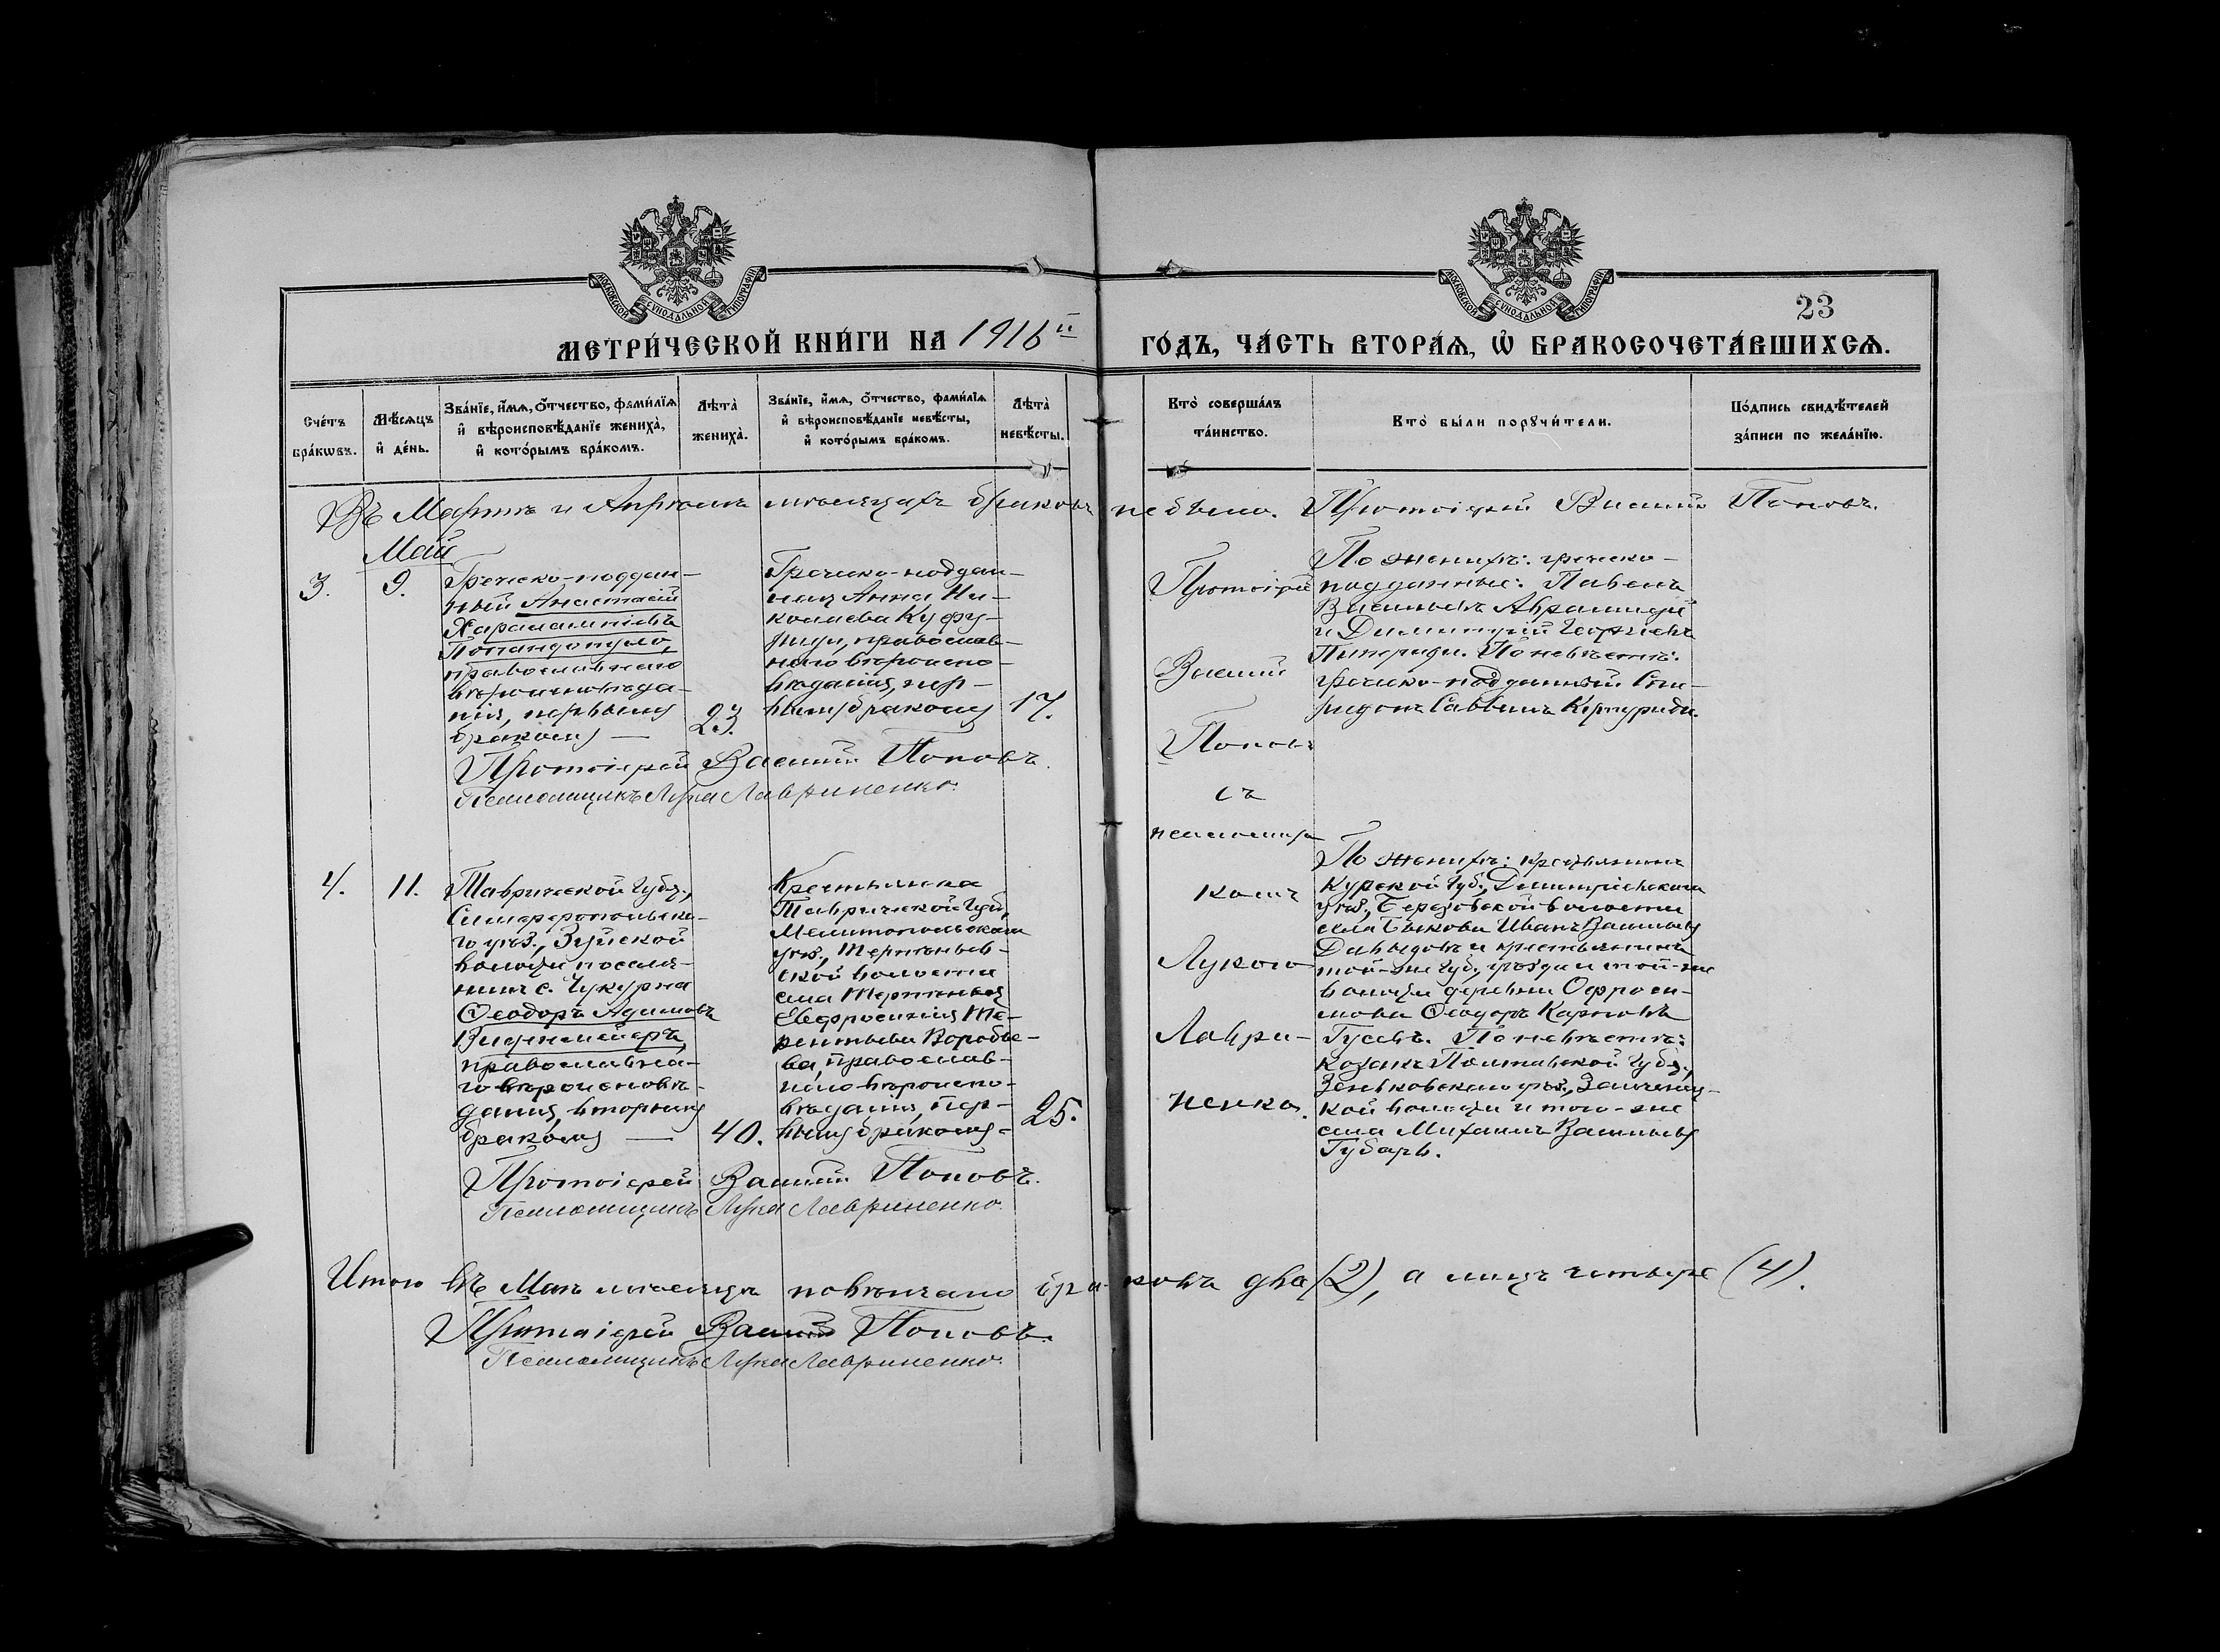 МОСКОВСКОЙ СѴНОДАЛЬНОЙ ТИПОГРАФІИ
МОСКОВСКОЙ СѴНОДАЛЬНОЙ ТИПОГРАФІИ
23
МЕТРИ́ЧЕСКОЙ КНИ́ГИ НА 1916й ГО́ДЪ, ЧА́СТЬ ВТОРА́Ѧ, Ѡ҆ БРАКОСОЧЕТА́ВШИХСѦ.
Сче́тъ бра́кѡвъ.
Мѣ́сѧцъ и҆ де́нь.
Зва́нїе, и҆́мѧ, о҆́тчество, фами́лїѧ
и҆ вѣроисповѣ́данїе жениха̀,
и҆ кото́рымъ бра́комъ.
Лѣта̀ жениха̀.
Зва́нїе, и҆́мѧ, о҆́тчество, фами́лїѧ
и҆ вѣроисповѣ́данїе невѣ́сты,
и҆ кото́рымъ бра́комъ.
Лѣта̀ невѣ́сты.
Кто̀ соверша́лъ
та́инство.
Кто̀ бы́ли порꙋчи́тели.
По́дпись свидѣ́телей
за́писи по жела́нїю.
Въ Мартѣ и Апрѣлѣ мѣсяцахъ браковъ не было. Протоіерей Василій Поповъ.
Май
3.
9.
Греческо-поддан-
ный Анастасій
Харалампіевъ
Попандопуло,
православнаго
вѣроисповѣда-
нія, первымъ
бракомъ —
23.
Греческо-поддан-
ная Анна Ни-
колаева
православ-
наго вѣроиспо-
вѣданія, пер-
вымъ бракомъ
17.
Протоіерей
Василій
Поповъ
съ
псаломщи-
комъ
Лукою
Лаври-
ненко.
По женихѣ: греческо-
подданные: Павелъ
Васильевъ
и Димитрій Георгіевъ
По невѣстѣ:
греческо-подданный Спи-
ридонъ Саввинъ
Протоіерей Василій Поповъ.
Псаломщикъ Лука Лавриненко.
4.
11.
Таврической губ.,
Симферопольска-
го уѣз., Зуйской
волости поселя-
нинъ с.
Ѳеодоръ Адамовъ
православна-
го вѣроисповѣ-
данія, вторымъ
бракомъ —
40.
Крестьянка
Таврической губ.,
Мелитопольскаго
уѣз., Терпѣньев-
ской волости
села Терпѣнья
Евфросинія Те-
рентьева Воробье-
ва, православ-
наго вѣроиспо-
вѣданія, пер-
вымъ бракомъ-
25.
По женихѣ: крестьянинъ
Курской губ., Димитріевскаго
уѣз., Березовской волости
села Быкова Иванъ Васильевъ
Давыдовъ и крестьянинъ
той-же губ., уѣзда и той-же
волости деревни Офроси-
мова Ѳеодоръ Карповъ
Гусевъ. По невѣстѣ:
козакъ Полтавской губ.,
Зеньковскаго уѣз.,
кой волости и того-же
села Михаилъ Васильевъ
Губарь.
Протоіерей Василій Поповъ.
Псаломщикъ Лука Лавриненко.
Итого въ Маѣ мѣсяцѣ повѣнчано браковъ два (2), а лицъ четыре (4).
Протоіерей Василій Поповъ.
Псаломщикъ Лука Лавриненко.